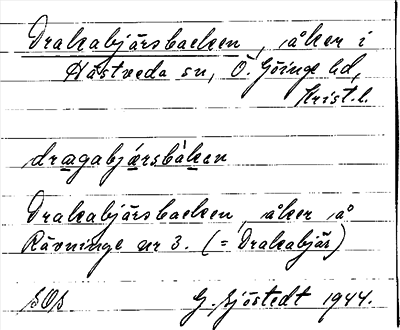 Drakabjärsbacken, åker i
Hästveda sn, Ö. Göinge hd,
Krist.l.
dragabjársbàkan
Drakabjärsbacken, åker å
Rävninge nr 3. (= Drakabjär)
SOS G. Sjöstedt 1944.